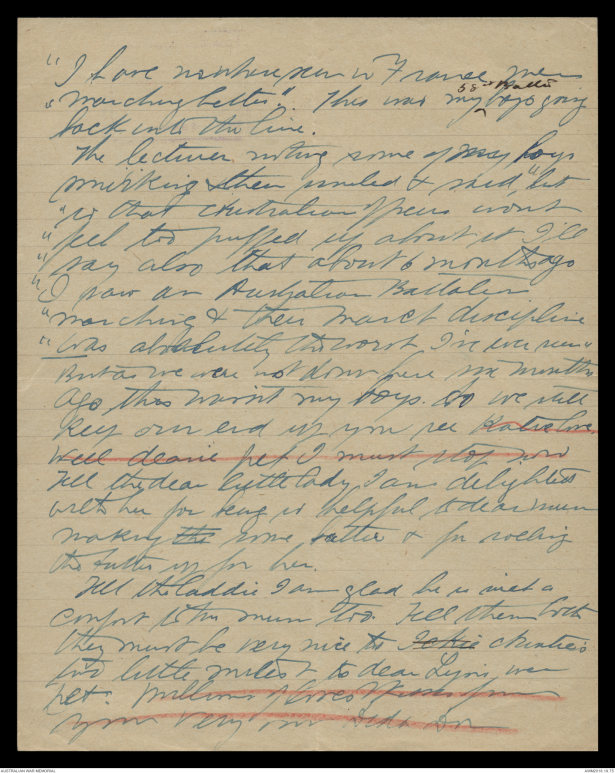 "I have nowhere seen in France men
58th Battn
"marching better". This was my boys going
back into the line.
The lecturer noting some of my boys
smirking then smiled & said, "but
"so that Australian Officers wont
"feel too puffed up about it I'll
"say also that about 6 months ago
"I saw an Australian Battalion
"marching & their march discipline
"was absolutely the worst I've ever seen"
But as we were not down here six months
ago, this wasn't my boys. So we still
keep our end up you see Katie love.
Well dearie pet I must stop now
Tell the dear little lady I am delighted
with her for being so helpful to dear mum
making the some and & for rolling
the up for her.
Tell the laddie I am glad he is such a
comfort to his mum too. Tell them both
they must be very nice to Jackie Auntie's
two little mites & to dear Lyons wee
pet. Millions of loves & kisses from
your very own
AUSTRALIAN WAR MEMORIAL